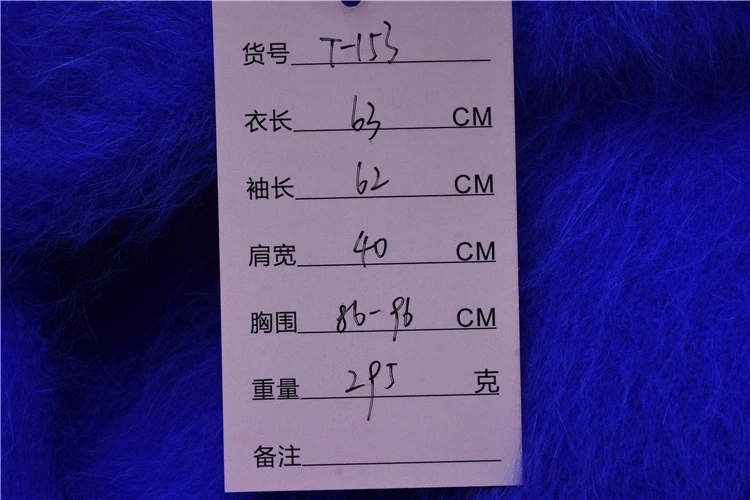 货号 T-153
衣长 63 CM
袖长 62 CM
肩宽 40 CM
胸围 86-96 CM
重量 295 克
备注